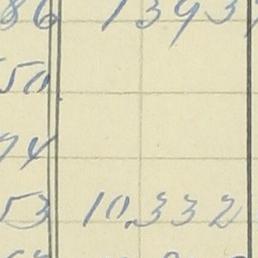 86 13937
50
74
53 10.332